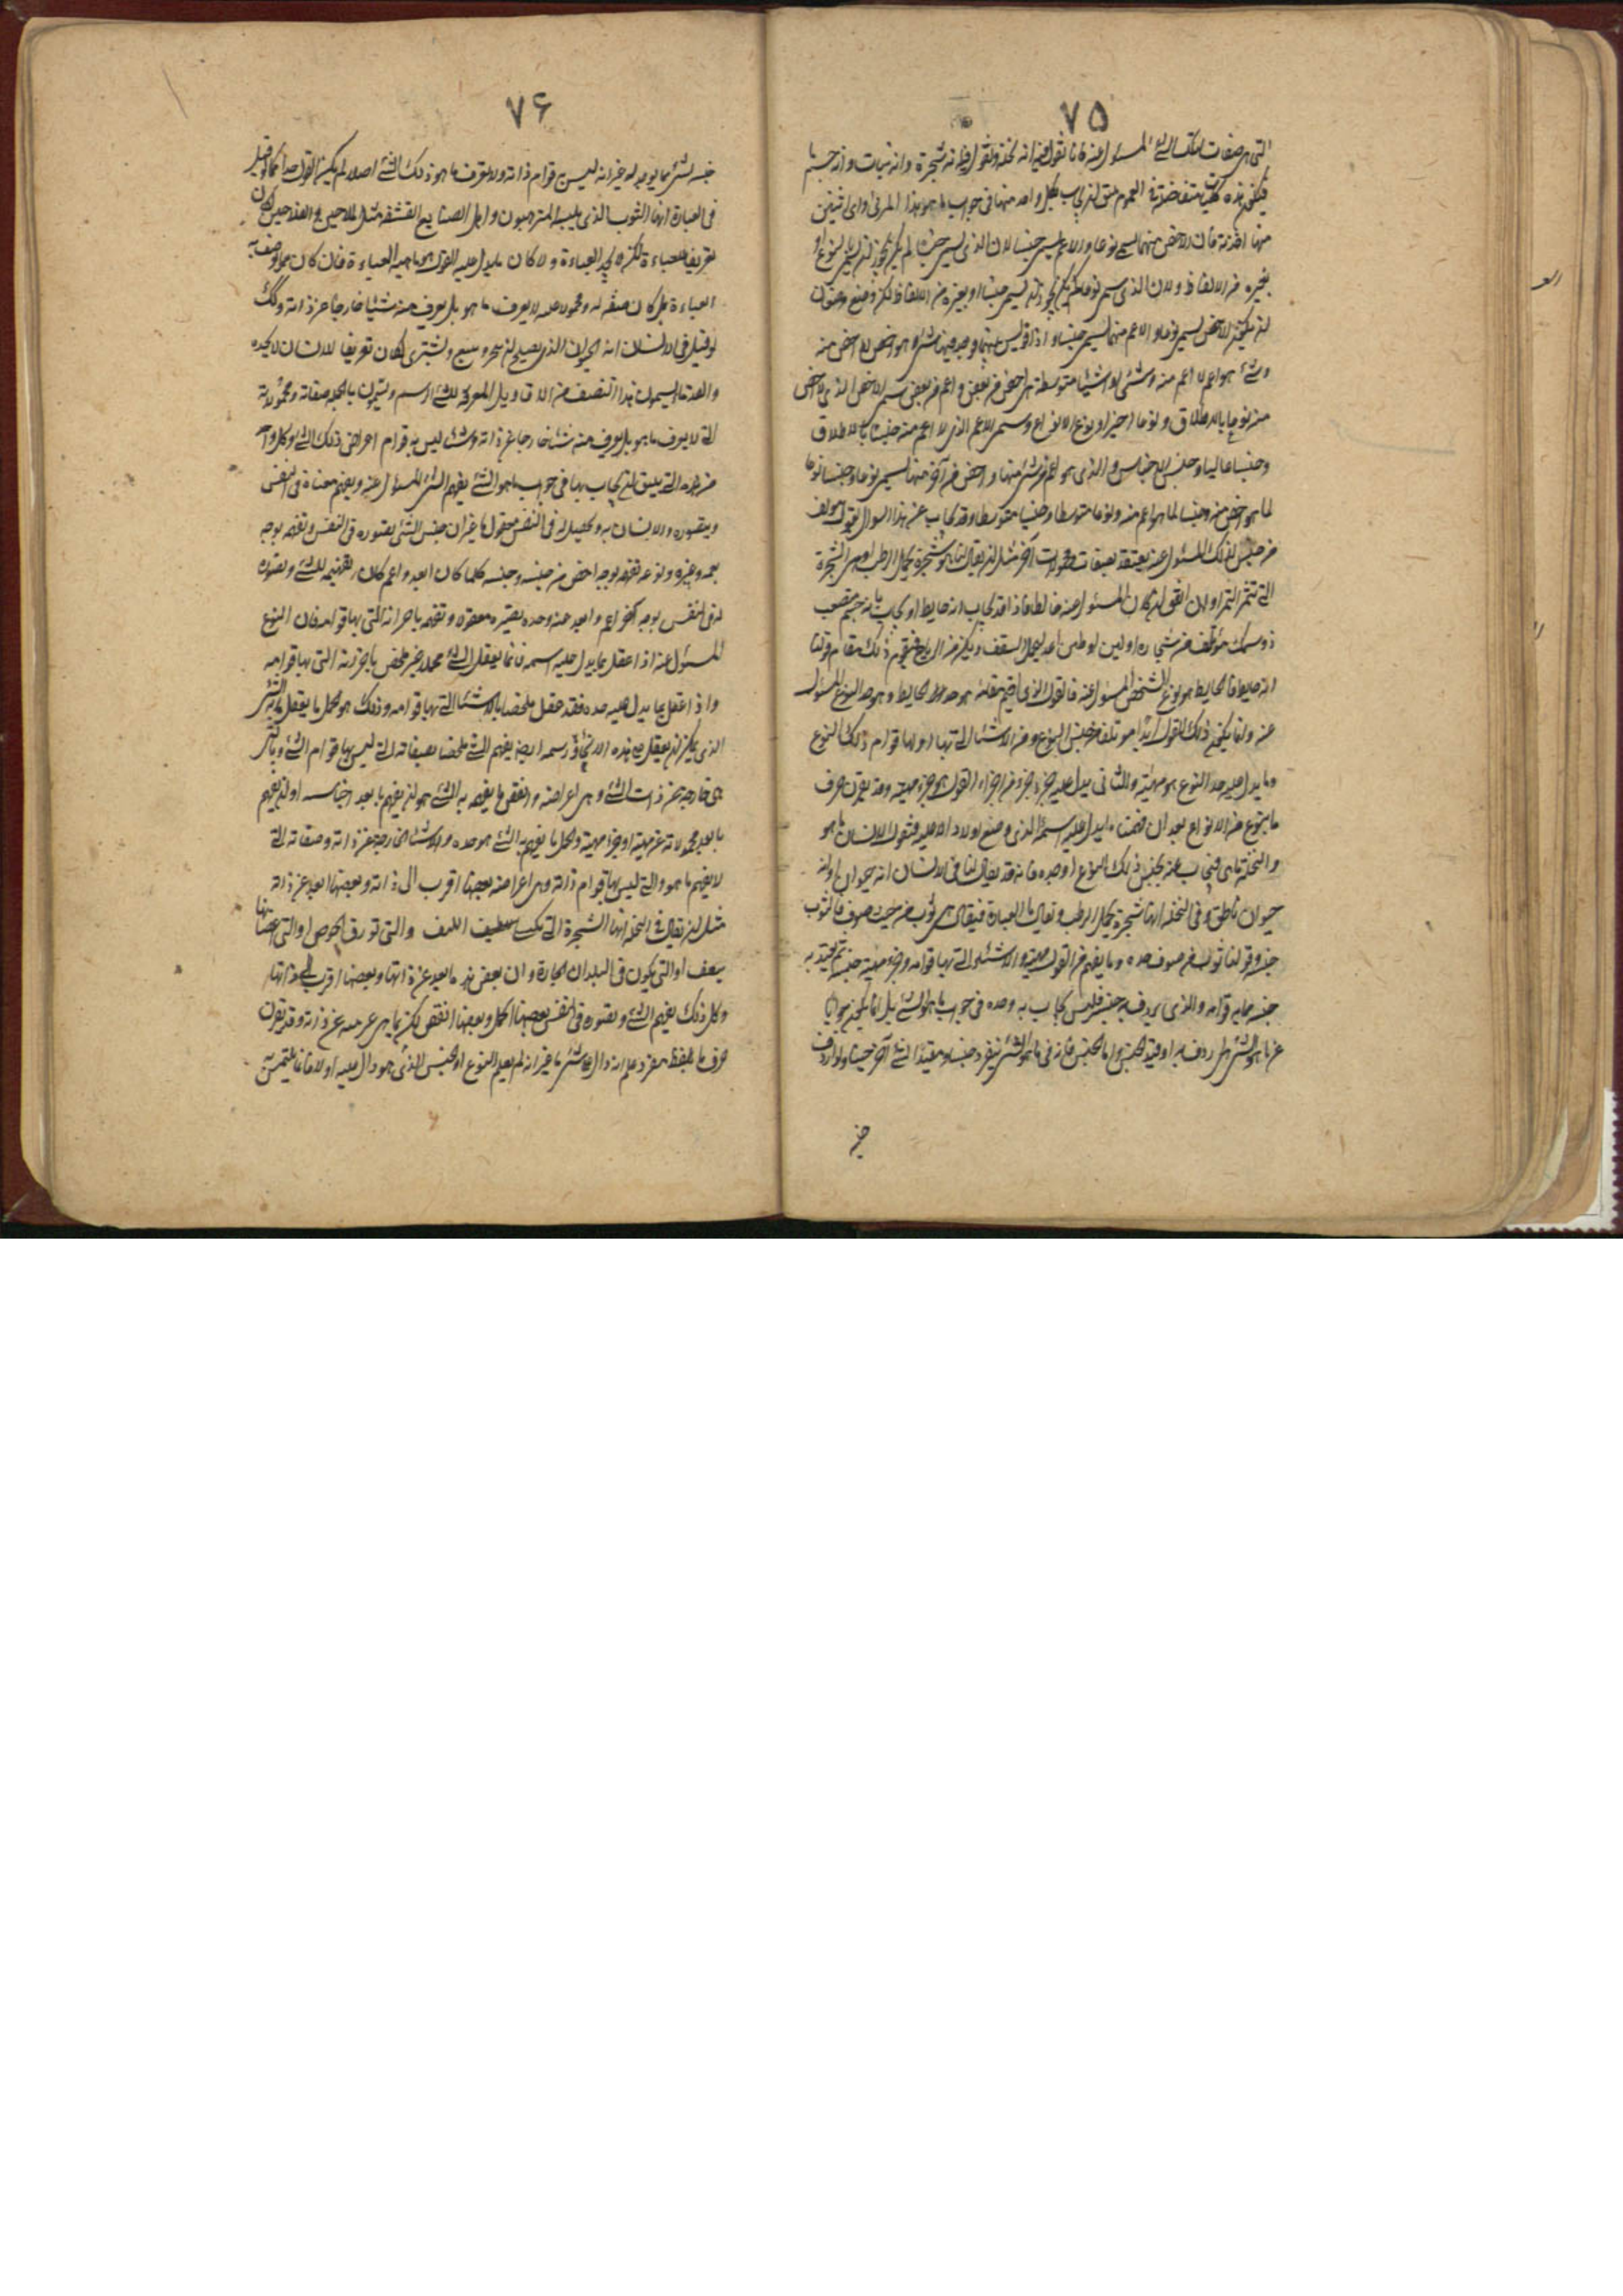 ٧٥
التى هى صفات لذلك الشئ المسئول عنه فانا نقول فيه انه نخلة ونقول فيه انه شجرة وانه نبات وانه جسم ما
فيكون هذه كليات متفاضلة فى العموم يليق ان يجاب بكل واحد منها فى جواب ما هو هذا المرئى واى اثنين
منها اخذته فان الاخص منهما يسمى نوعا والاعم يسمى جنسا لان الذى يسمى جنسا لم يكن يجوز ان يسمى نوعا او
بغيره من الالفاظ ولان الذى سمى نوعا لم يكن يجوز ان يسمى جنسا او بغيره من الالفاظ لكن وضع وضعا
ان يكون الاخص يسمى نوعا والاعم منهما يسمى جنسا واذا قويس بينها وجد فيها شئ هو اخص لا اخص منه
وشئ هو اعم لا اعم منه وشئ او اشياء متوسطة هى اخص من بعض واعم من بعض سمى الاخص الذى لا اخص
منه نوعا بالاطلاق ونوعا اخيرا ونوع الانواع وسمى الاعم الذى لا اعم منه جنسا بالاطلاق
وجنسا عاليا وجنس الاجناس والذى هو اعم من شئ منها واخص من آخر منها يسمى نوعا وجنسا نوعا
لما هو اخص منه وجنسا لما هو اعم منه ونوعا متوسطا وجنسا متوسطا وقد يجاب عن هذا السوال بقول مولف
من جنس لذلك المسئول عنه يقيد بصفات ومحمولات آخر مثل ان يقال لنا ما هو شجرة يحمل الرطب او هى الشجرة
التى تثمر التمر او ان اتفق ان يكون المسئول عنه حائطا فاذا قد يجاب انه حايط او يجاب بانه جسم منتصب
ذو سمك مؤتلف من حجارة او لبن او طين اعد ليحمل السقف
انه حايط فالحايط هو نوع الشخص المسئول عنه فالقول الذى اقيم مقامه هو حد الحايط وهو حد النوع المسئول
عنه وانما يكون ذلك القول ابدا موتلفا من جنس النوع ومن الاشياء التى بها او لها قوام ذلك النوع
وما يدل عليه حد النوع هو مهيته والثانى يدل عليه جزء جزء من اجزاء القول هو جزء مهيته وقد يقرن حرف
ما بنوع من الانواع بعد ان فهمنا ما يدل عليه اسمه الذى وضع اولا دالا عليه فنقول الانسان ما هو
والنخلة ما هى فنجيب عنه بجنس ذلك النوع او بحده فانه قد يقال لنا فى الانسان انه حيوان او انه
حيوان ناطق وفى النخلة انها شجرة يحمل الرطب ويقال ما العباءة فيقال هى ثوب من صوف فالثوب
جنس وقولنا ثوب من صوف حده وما يفهم من القول مهيته والاشياء التى بها قوامه وجزء مهيته جنسه ثم يقيد به
جنسه مما به قوامه والذى يردف به جنسه فليس يجاب به وحده فى جواب ما هو الشئ بل انما يكون جوابا
عن ما هو الشئ اذا اردف به او قيد الجنس واما الجنس فانه فى ما هو الشئ ينفرد جنسا ومقيدا بشئ آخر جنسا ولو اردف
جنـ
٧۶
جنسه بشئ مما يوجد له غير انه ليس به قوام ذاته ولا يعرف ما هو ذلك الشئ اصلا لم يكن القول حدا كما لو قيل
فى العباءة انها الثوب الذى يلبسه المترهبون واهل الصنايع القشفة مثل الملاحين والفلاحين كان
تعريفا للعباءة لكن لا بحد العباءة ولا كان ما يدل عليه القول هو ماهية العباءة فان كان مما يوصف به
العباءة بل كان صفة له ومحمولا عليه لا يعرف ما هو بل يعرف منه شيئا خارجا عن ذاته وكذلك
لو قيل فى الانسان انه الحيوان الذى يصلح ان يتجر ويبيع ويشترى لكان تعريفا للانسان لا بحده
والقدماء يسمون هذا الصنف من الاقاويل المعرفة للشئ الرسم ويسمون بالجملة صفاته ومحمولاته
التى لا يعرف ما هو بل يعرف منه شيئا خارجا عن ذاته وشيئا ليس به قوام اعراض ذلك الشئ وكل واحد
من هذه التى يليق ان يجاب بها فى جواب ما هو الشئ يفهم الشئ المسئول عنه ويقيم معناه فى النفس
ويتصوره الانسان به ويحصل له فى النفس معقول ما غير ان جنس الشئ يتصوره فى النفس وتفهمه بوجه
يعمه وغيره ونوعه تفهمه بوجه اخص من جنسه وجنسه كلما كان ابعد واعم كان تفهيمه للشئ وتصويره
له فى النفس بوجه آخر اعم وابعد عنه وحده يصيره معقولا وتفهمه باجزائه التى بها قوامه فان النوع
المسئول عنه اذا عقل بما يدل عليه اسمه فانما يعقل الشئ مجملا غير ملخص باجزائه التى بها قوامه
واذا عقل بما يدل عليه حده فقد عقل ملخصا بالاشياء التى بها قوامه وذلك هو اكمل ما يعقل به الشئ
الذى يمكن ان يعقل على هذه الانحاء ورسمه ايضا يفهم الشئ ملخصا بصفاته التى ليس بها قوام الشئ وبالتى
هى خارجة عن ذات الشئ وهى اعراضه وانقص ما يفهم به الشئ هو ان يفهم بابعد اجناسه او ان يفهم
بابعد محمولاته عن مهيته او جزء مهيته واكمل ما يفهم به الشئ هو حده والاشياء الخارجة عن ذاته وصفاته التى
لا يفهم ما هو والتى ليس بها قوام ذاته وهى اعراضه بعضها اقرب الى ذاته وبعضها ابعد عن ذاته
مثل ان يقال فى النخلة انها الشجرة التى تكتسى بليف والتى تورق الخوص او التى اغصانها
سعف او التى يكون فى البلدان الحارة وان بعض هذه ابعد عن ذاتها وبعضها اقرب الى ذاتها
وكل ذلك يفهم الشئ ويصوره فى النفس بعضها اكمل وبعضها انقص لكن بما هى عرضية عن ذاته وقد يقرن
حرف ما بلفظ مفرد علم انه دال على شئ ما غير انه لم يعلم النوع او الجنس الذى هو دال عليه اولا فانما يلتمس به